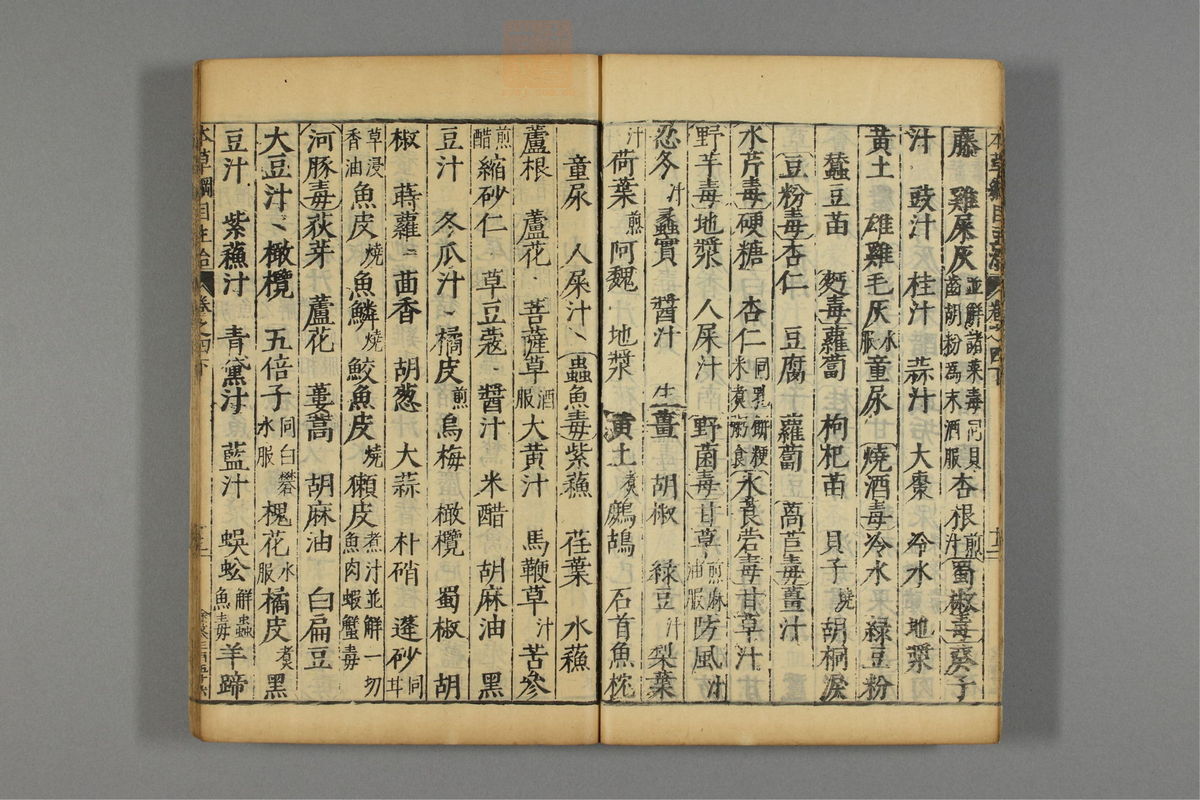 藤 雞屎灰 並解諸菜毒 葛胡粉為末酒服 同貝 杏根 煎汁 蜀椒毒 葵子
汁 豉汁 桂汁 蒜汁 大棗 冷水 地漿
黃土 雄雞毛灰 水服 童尿 燒酒毒 冷水 綠豆粉
蠶豆苗 麪毒 蘿蔔 枸杞苗 貝子 燒 胡桐淚
豆粉毒 杏仁 豆腐 蘿蔔 萵苣毒 薑汁
水芹毒 硬糖 杏仁 同乳餅粳米煮粥食 水莨菪毒 甘草汁
野芋毒 地漿 人屎汁 野菌毒 甘草 煎麻油服 防風 汁
忍冬 汁 蠡實 醬汁 生薑 胡椒 綠豆 汁 梨葉
汁 荷葉 煎 阿魏 地漿 黃土 煮 鷓鴣 石首魚枕
童尿 人屎汁 蟲魚毒 紫蘓 荏葉 水蘓
蘆根 蘆花 菩薩草 酒服 大黃汁 馬鞭草 汁 苦參
煎醋 縮砂仁 草豆蔻 醬汁 米醋 胡麻油 黑
豆汁 冬瓜汁 橘皮 煎 烏梅 橄欖 蜀椒 胡
椒 蒔蘿 茴香 胡葱 大蒜 朴硝 蓬砂 同甘
草浸香油 魚皮 燒 魚鱗 燒 鮫魚皮 燒 獺皮 煮汁並解一切魚肉蝦蟹毒
河豚毒 荻芽 蘆花 蔞蒿 胡麻油 白扁豆
大豆汁 橄欖 五倍子 同白礬水服 槐花 水服 橘皮 煮 黑
豆汁 紫蘓汁 青黛汁 藍汁 蜈蚣 解蟲魚毒 羊蹄
本草綱目主治 卷之四下